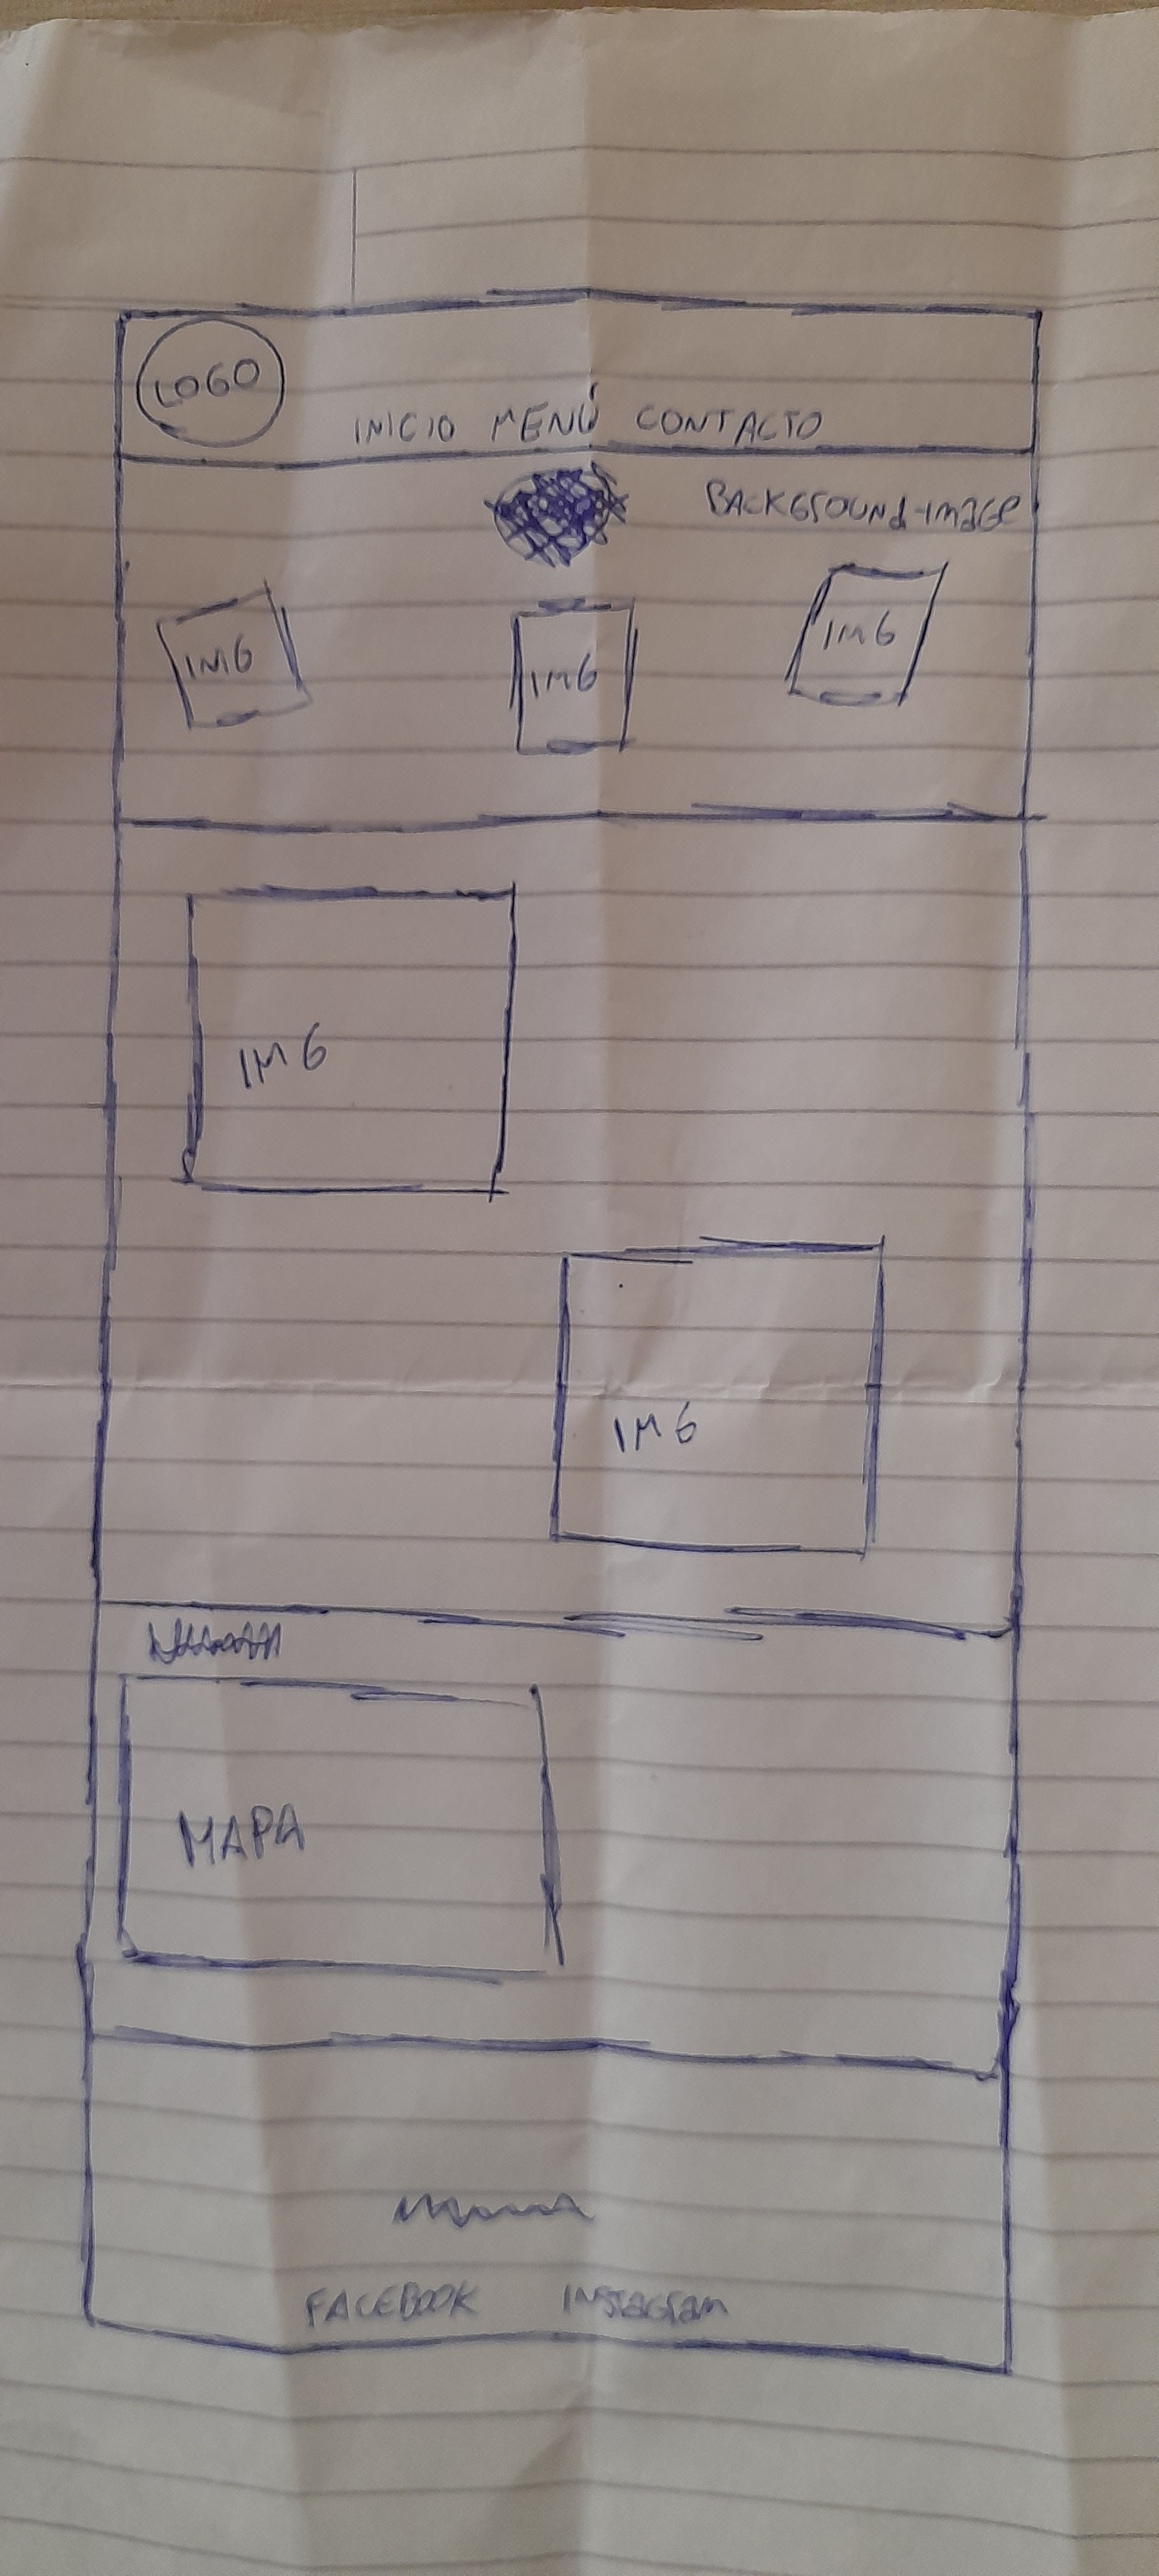 LOGO
INICIO MENÚ CONTACTO
BACKGROUND-IMAGE
IMG IMG IMG
IMG
IMG
MAPA
FACEBOOK INSTAGRAM